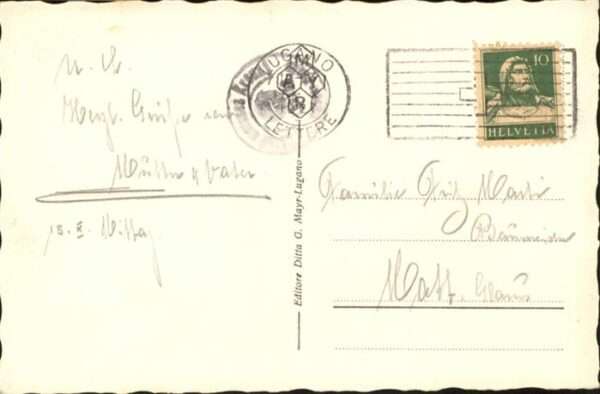 Herzl. Grüsse von
Mutter & Vater
15. X. Mittag
LUGANO
LETTERE
10
HELVETIA
Editore Ditta G. Mayr-Lugano
Familie Fritz Marti
Baumeister
Matt. Glarus